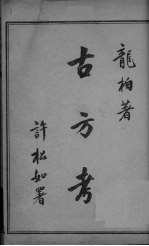 龍柏著
古方考
許松如署